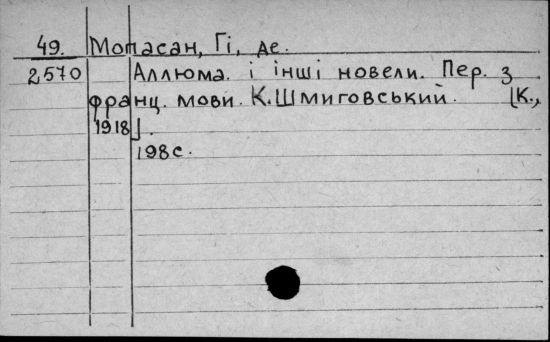 49. Мопасан, Гі, де.
2570 Аллюма. і інші новели. Пер. з
франц. мови. К.Шмиговський. [К.,
1918].
198с.